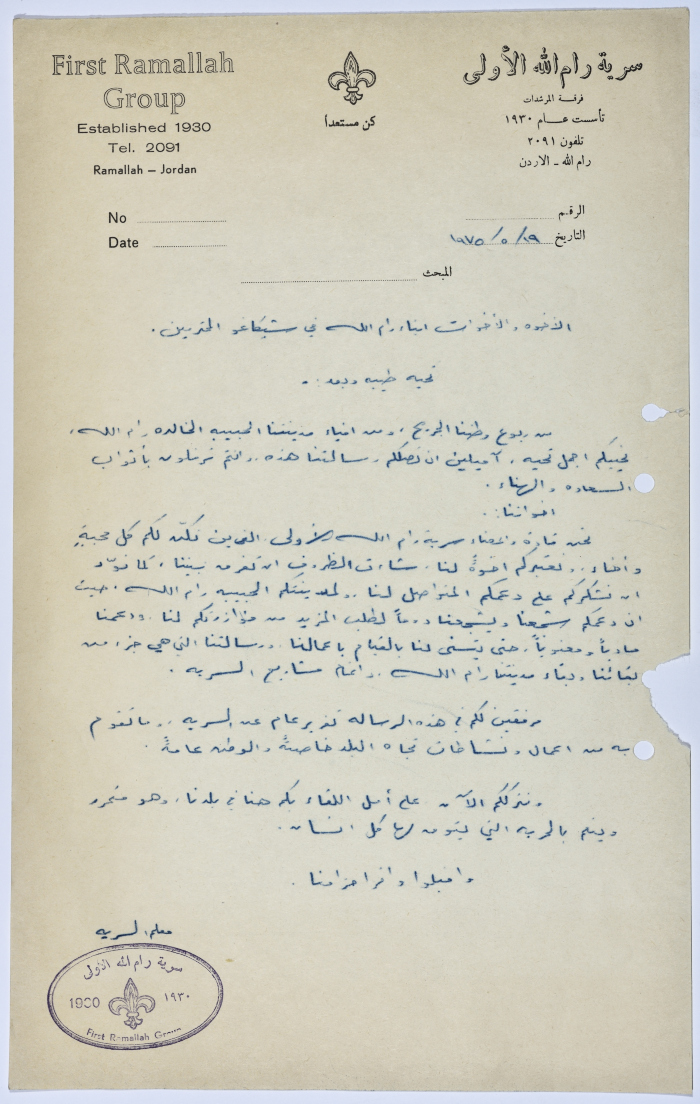 First Ramallah
Group
Established 1930
Tel. 2091
Ramallah – Jordan
كن مستعداً
سرية رام الله الأولى
فرقة المرشدات
تأسست عام ١٩٣٠
تلفون ٢٠٩١
رام الله - الاردن
No
Date
الرقم
التاريخ ١٩ / ٥ / ١٩٧٥
المبحث
الاخوه والأخوات ابناء رام الله في شيكاغو المحترمين .
تحيه طيبه وبعد : -
من ربوع وطننا الجريح ، ومن افياء مدينتنا الحبيبه الخالده رام الله ،
نحييكم اجمل تحيه ، آميلين ان تصلكم رسالتنا هذه ، وانتم ترفلون بأثواب
السعاده والهناء .
اخواننا :
نحن قادة واعضاء سرية رام الله الأولى ، الذين نكنّ لكم كل محبةٍ
وأخاء ، ونعتبركم اخوةً لنا ، شاءت الظروف ان تفرق بيننا ، كما نودّ
ان نشكركم على دعمكم المتواصل لنا ، ولمدينتكم الحبيبه رام الله ، حيث
ان دعمكم شجعنا ويشجعنا دوماً لطلب المزيد من مؤازرتكم لنا ، ودعمنا
مادياً ومعنوياً ، حتى يتسنى لنا بالقيام باعمالنا ، ورسالتنا التي هي جزء من
بقائنا وبقاء مدينتنا رام الله ، واتمام مشاريع السريه .
مرفقين لكم في هذه الرساله تقرير عام عن السريه ، وما تقوم
به من اعمال ونشاطات تجاه البلد خاصةً والوطن عامةً .
ونترككم الآن على أمل اللقاء بكم هنا في بلدنا ، وهو متحرر
وينعم بالحريه التي يتوق لها كل انسان .
واقبلوا وافر احترامنا .
معلم السريه
سرية رام الله الاولى
1930 ١٩٣٠
First Ramallah Group